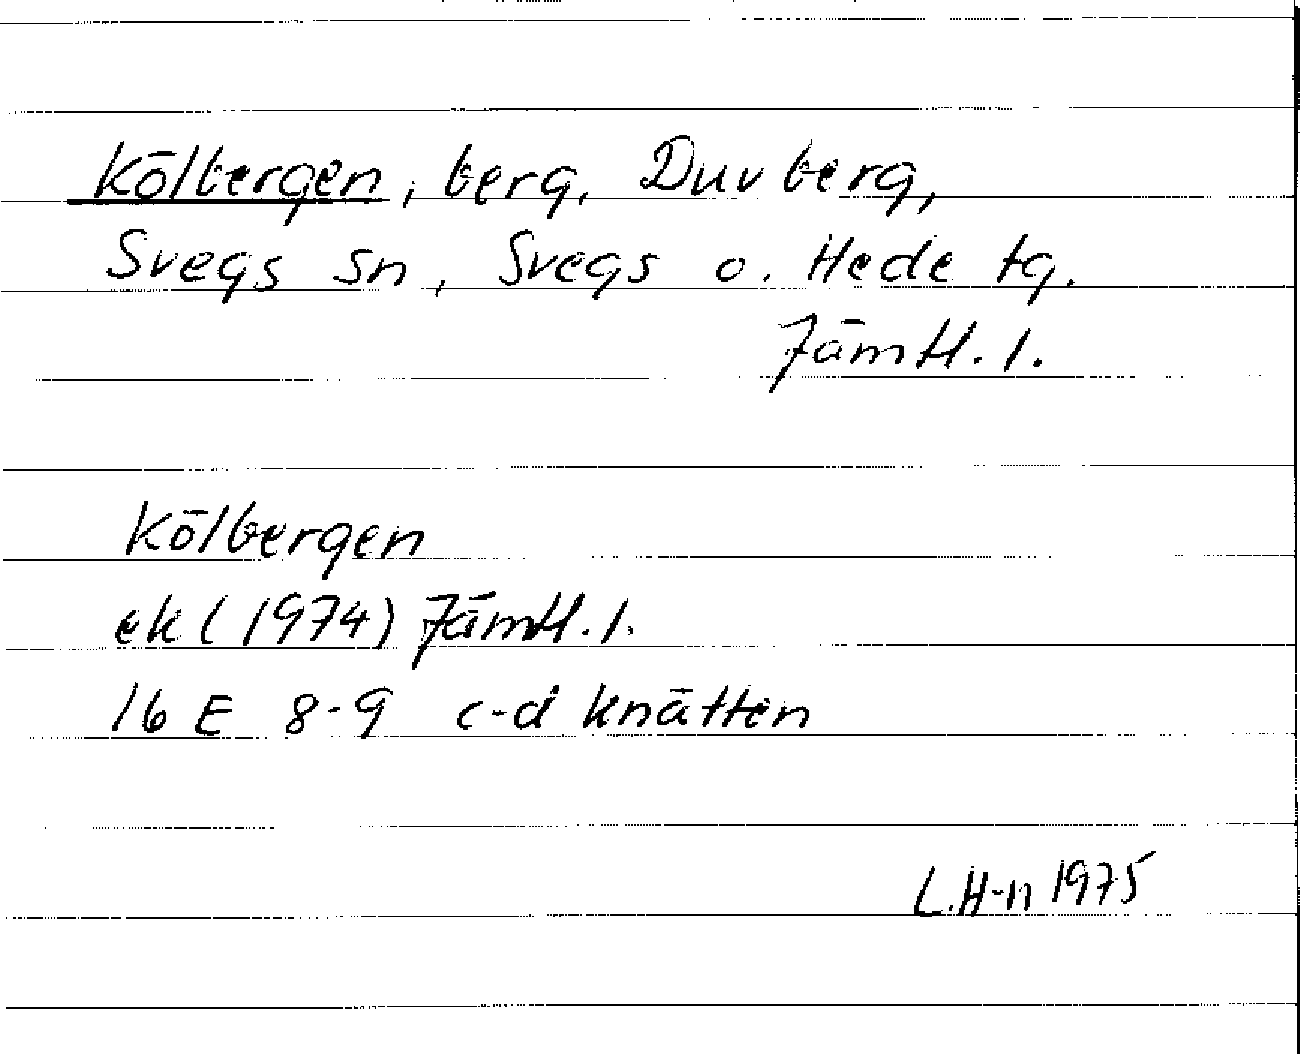 Kölbergen, berg, Duvberg,
Svegs sn, Svegs o. Hede tg.
Jämtl. l.
Kölbergen
ek (1974) Jämtl. l.
16 E 8-9 c-d Knätten
L.H-n 1975